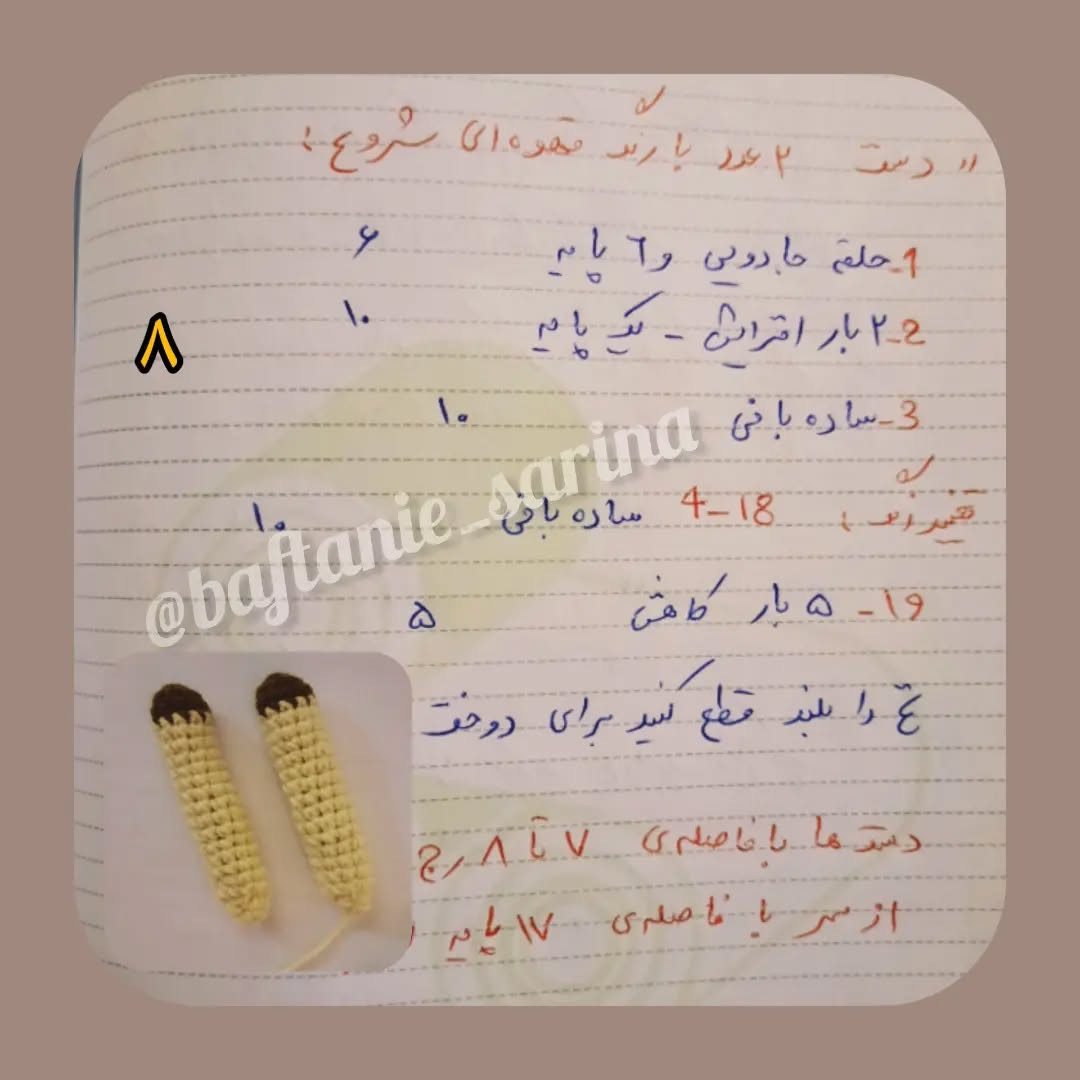 " دست ۲ عدد با رنگ قهوه ای شروع :
1- حلقه جادویی و 6 پایه ۶
2- ۲ بار افزایش - یک پایه ۱۰
3- ساده بافی ۱۰
تغییر رنگ : 4-18 ساده بافی ۱۰
۱۹- ۵ بار کاهش ۵
نخ را بلند قطع کنید برای دوخت
دست ها با فاصله‌ی ۷ تا ۸ رج
از سر با فاصله‌ی ۱۷ پایه
۸
@baftanie_sarina